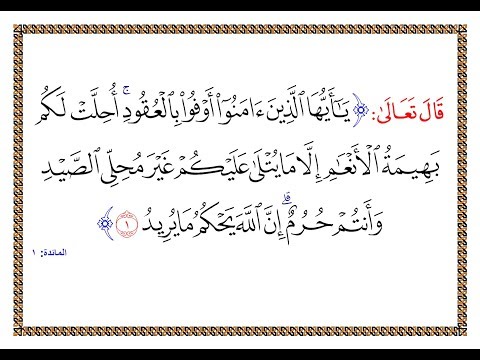 قَالَ تَعَالَىٰ: ﴿يَـٰٓأَيُّهَا ٱلَّذِينَ ءَامَنُوٓا۟ أَوْفُوا۟ بِٱلْعُقُودِ ۚ أُحِلَّتْ لَكُم
بَهِيمَةُ ٱلْأَنْعَـٰمِ إِلَّا مَا يُتْلَىٰ عَلَيْكُمْ غَيْرَ مُحِلِّى ٱلصَّيْدِ
وَأَنتُمْ حُرُمٌ ۗ إِنَّ ٱللَّهَ يَحْكُمُ مَا يُرِيدُ ١﴾
المائدة: ١